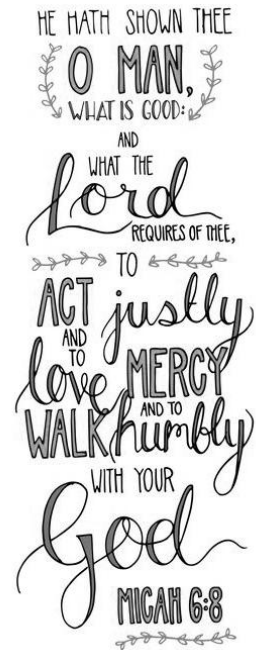 HE HATH SHOWN THEE
O MAN,
WHAT IS GOOD:
AND
WHAT THE
Lord
REQUIRES OF THEE,
TO
ACT justly
AND
TO
love MERCY
AND TO
WALK humbly
WITH YOUR
God
MICAH 6:8